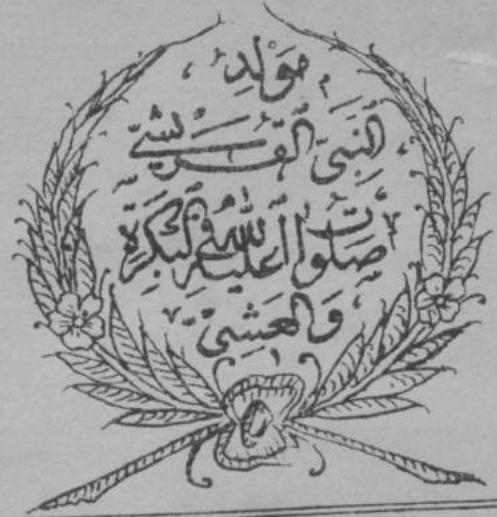 مَوْلِدِ
النَّبِيِّ الْقُرَيْشِيِّ
صَلَوَاتُ اللهِ عَلَيْهِ فِي الْبُكْرَةِ
وَالْعَشِيِّ